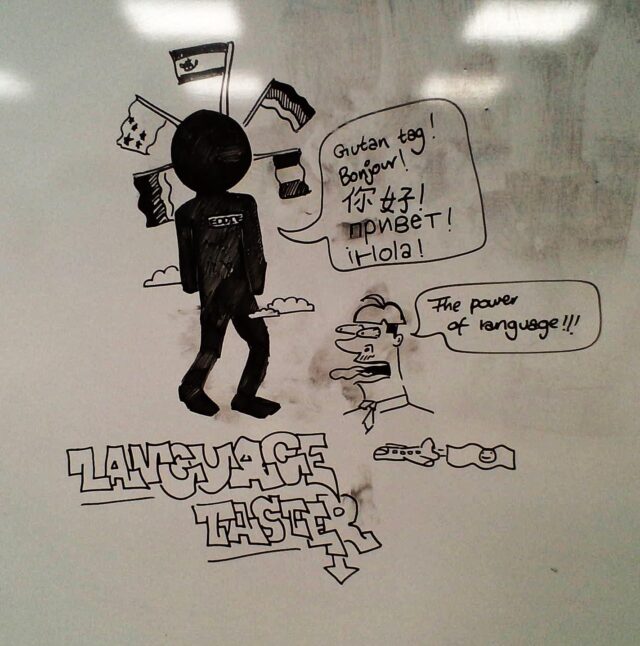 Gutan tag!
Bonjour!
你好!
привет!
¡Hola!
The power
of language!!!
LANGUAGE
TASTER